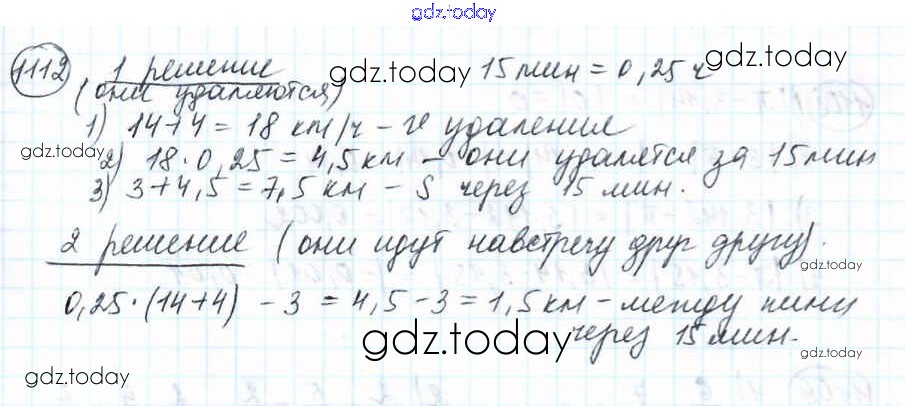 gdz.today
1112 1 решение 15 мин = 0,25 ч
gdz.today gdz.today
(они удаляются)
1) 14+4 = 18 км/ч - v удаления
gdz.today
2) 18·0,25 = 4,5 км - они удалятся за 15 мин
3) 3+4,5 = 7,5 км - S через 15 мин.
2 решение (они идут навстречу друг другу).
gdz.today
0,25·(14+4) - 3 = 4,5-3 = 1,5 км - между ними
через 15 мин.
gdz.today gdz.today
gdz.today